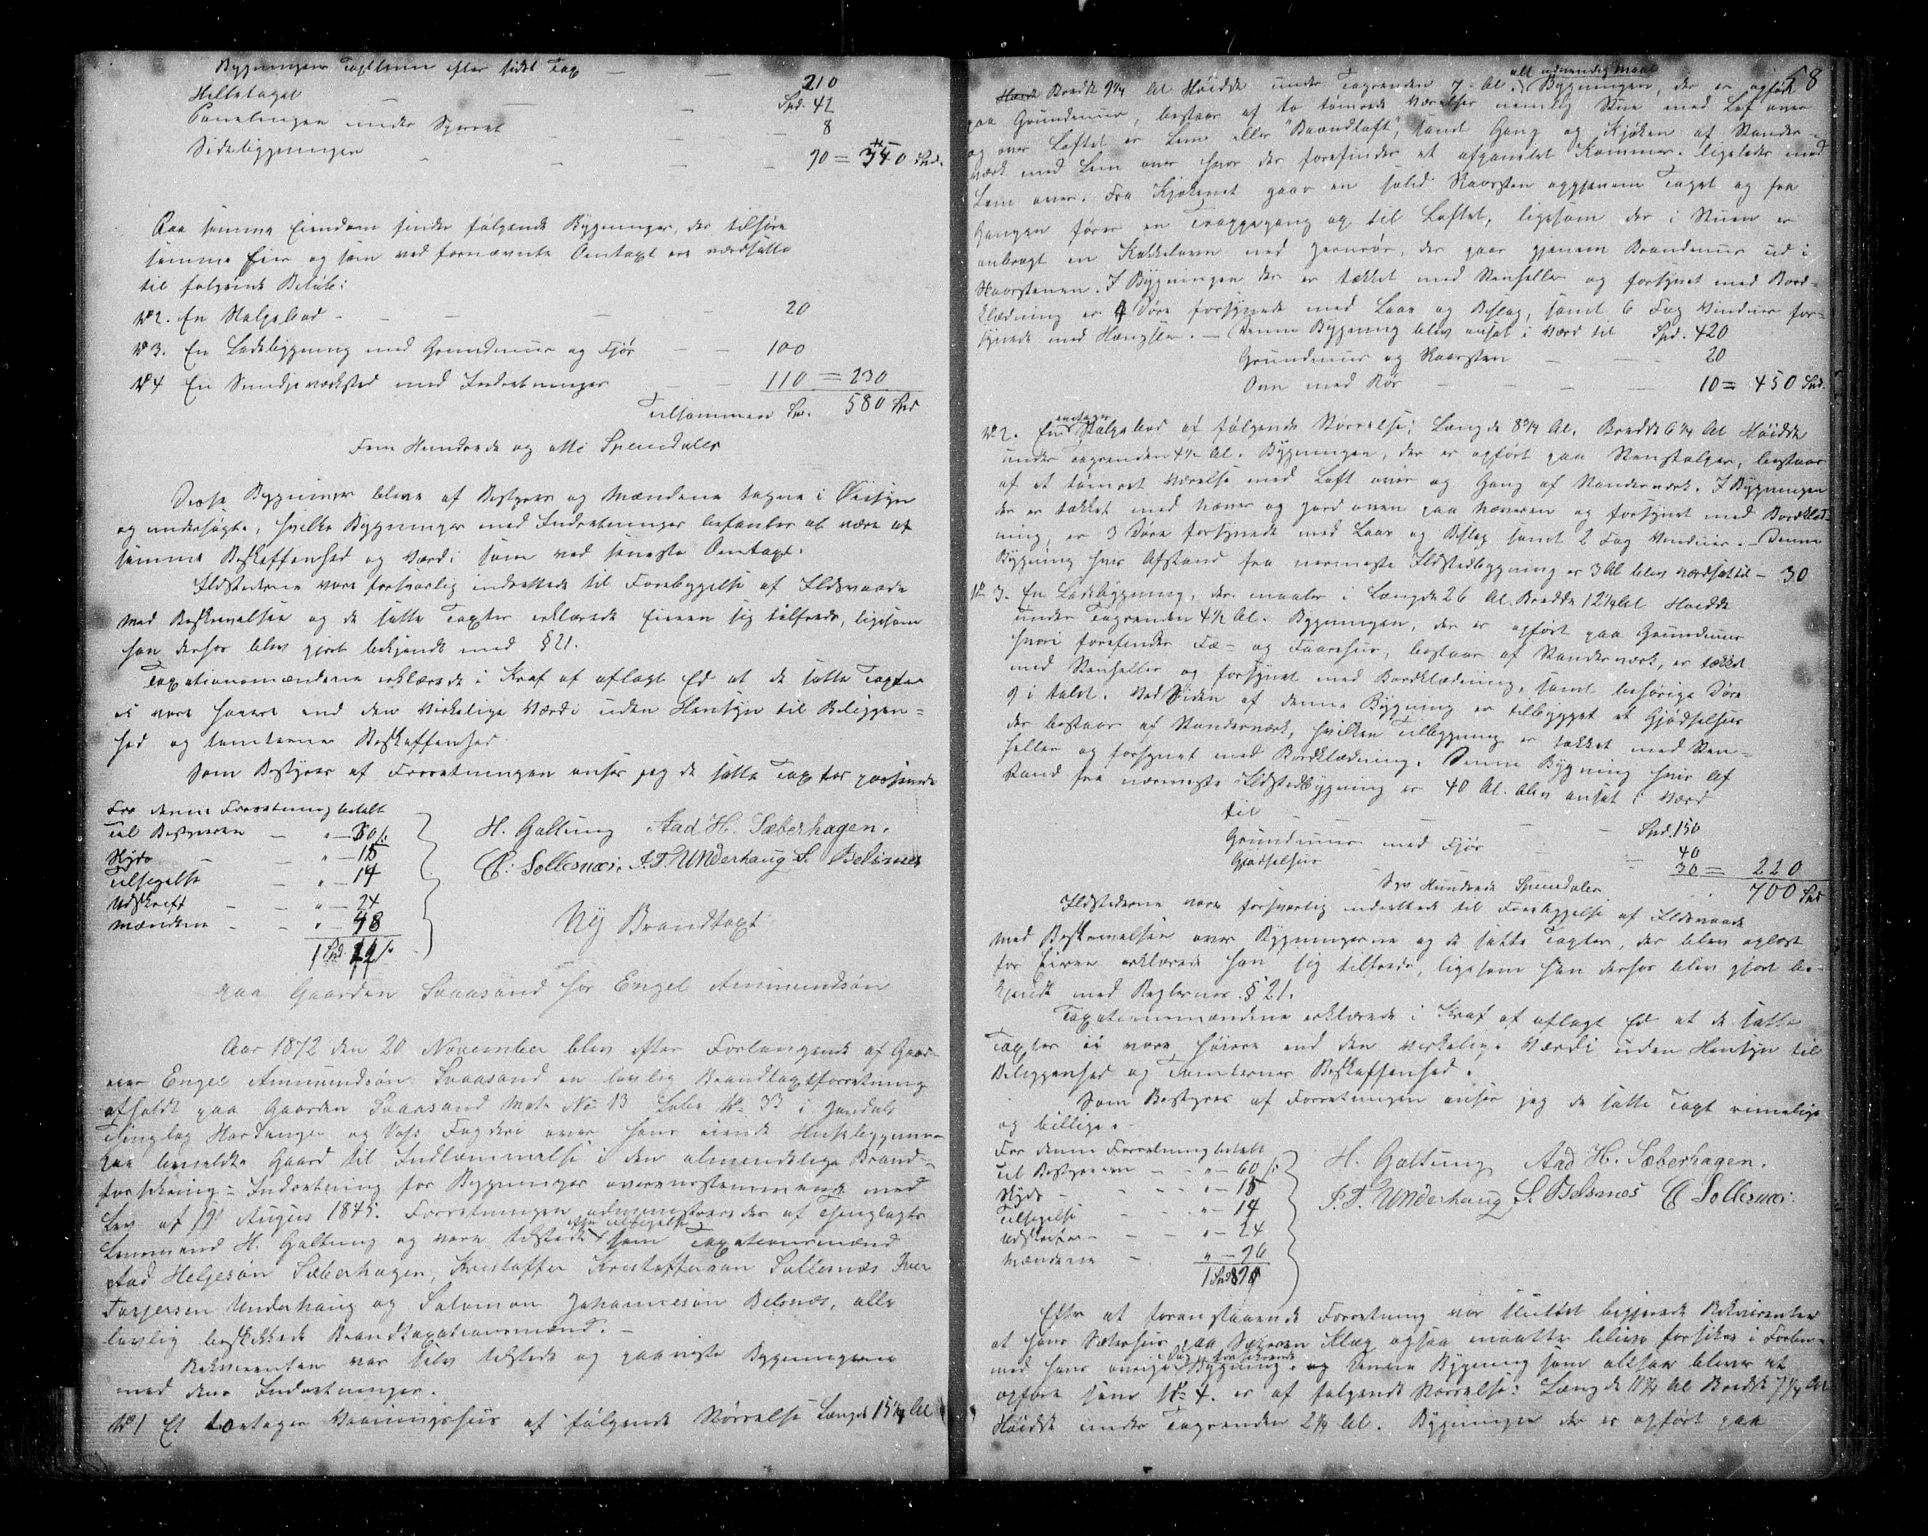 Bygningens Taxtsum efter sidst Tax — — 210
Helletaget — — Spd. 42
Panelingen under Sperret — 8
Sidebygningen — — 90 = 350 Spd.
Paa samme Eiendom findes følgende Bygninger, der tilhøre
samme Eier og som ved fornævnte Omtaxt ere værdsatte
til følgende Beløb:
No 2. En Stolpebod — — — 20
No 3. En Ladebygning med Grundmuur og Fjøs — — 100
No 4 En Smedjeværksted med Indretninger — — 110 = 230
Tilsammen Spd. 580 Spd
Fem Hundrede og otti Speciedaler
Disse Bygninger bleve af Bestyrer og Mændene tagne i Øiesyn
og undersøgte, hvilke Bygninger med Indretninger befandtes at være af
samme Beskaffenhed og Værdi som ved seneste Omtaxt.
Ildstederne vare forsvarlig indrettede til Forebyggelse af Ildsvaade
Med Beskrivelsen og de satte Taxter erklærede Eieren sig tilfreds, ligesom
han derhos blev gjort bekjendt med § 21.
Taxationsmændene erklærede i Kraf af aflagt Ed at de satte Taxter
ei vare høiere end den virkelige Værdi uden Hensyn til Beliggen=
hed og tomternes Beskaffenhed.
Som Bestyrer af Forretningen anser jeg de satte Taxter passende
For denne Forretning betalt
til Bestyreren — " — 30 s.
Skyds — " — 18
Tilsigelse — " — 14
Udskrift — — " — 24
Mændene — — " 48
1 Spd.
H. Galtung Aad H. Sæberhagen.
C. Sollesnæs. I. T. Underhaug S. Belsnæs
Ny Brandtaxt
paa Gaarden Svaasand for Engel Ammundsøn
Aar 1872 den 20 November blev efter Forlangende af Gaard-
eier Engel Ammundsøn Svaasand en lovlig Brandtaxtforretning
afholdt paa Gaarden Svaasand Mat. No 13 Løbe No 33 i Jondals
Tinglag Hardanger og Vos Fogderi over hans eiende Husebygninger
paa bemeldte Gaard til Indlemmelse i den almindelige Brand-
forsikrings= Indretning for Bygninger overensstemmende med
Lov af 19 August 1845. Forretningen administreredes af Thinglagets
Lensmand H. Galtung og vare tilstede efter tilsigelse som Taxationsmænd
Aad Helgesøn Sæberhagen, Kristoffer Kristoffersøn Sollesnæs Iver
Torgersen Underhaug og Salomon Johannesøn Belsnæs, alle
lovlig beskikkede Brandtaxationsmænd. —
Rekvirenten var selv tilstede og paaviste Bygningerne
med dens Indretninger.
No 1 Et toetages Vaaningshuus af følgende Størrelse Længde 15 1/4 Al
58
alt udvendig Maal
Bredde 9 1/4 Al Høide under Tagrenden 7 Al. Bygningen, der er opført
paa Grundmuur, bestaar af to tømrede Værelser nemlig Stue med Loft over
og over Loftet er Lem eller "Brandloft", samt Gang og Kjøken af Stander-
værk med Lem over hvor der forefindes et afpanelet Kammer. ligeledes med
Lem over. Fra Kjøkenet gaar en solid Skorsten opgjennem Taget og fra
Gangen fører en Trappegang op til Loftet, ligesom der i Stuen er
anbragt en Kakkelovn med Jernrør, der gaar gjennem Brandmur ud i
Skorstenen. I Bygningen der er tækket med Stenheller og forsynet med Bord-
klædning er 4 Døre forsynede med Laas og Beslag, samt 6 Fag Vinduer for-
synede med Hængsler. — Denne Bygning blev anset i Værd til Spd. 420
Grundmuur og Skorsten — — 20
Ovn med Rør — — — 10 = 450 Spd.
No 2. En enetages Stolpebod af følgende Størrelse: Længde 8 3/4 Al. Bredde 6 1/4 Al Høide
under Tagrenden 4 1/2 Al. Bygningen, der er opført paa Stenstolper, bestaar
af et tømret Værelse med Loft over og Gang af Standerværk. I Bygningen
der er tækket med Næver og Jord oven paa Næveren og forsynet med Bordklæd-
ning, er 3 Døre forsynede med Laas og Beslag samt 2 Fag Vinduer. — Denne
Bygning hvis Afstand fra nærmeste Ildstedbygning er 3 Al blev værdsat til — 30
No 3. En Ladebygning, der maaler i Længde 26 Al. Bredde 12 1/4 Al Høide
under Tagrenden 4 1/2 Al. Bygningen, der er opført paa Grundmuur
hvori forefindes Fæ- og Faarehus, bestaar af Standerværk, er tækket
med Stenheller og forsynet med Bordklædning, samt behørige Døre
9 i tallet. Ved Siden af denne Bygning er tilbygget et Gjødselhuus
der bestaar af Standerværk, hvilken Tilbygning er tækket med Sten-
heller og forsynet med Bordklædning. Denne Bygning hvis Af
stand fra nærmeste Ildstedbygning er 40 Al. blev anset i Værd
til — — Spd. 150
Grundmuur med Fjøs — — 40
Gjødselhuus — — 30 = 220
Syv Hundrede Speciedaler 700 Spd
Ildstederne vare forsvarlig indrettede til Forebyggelse af Ildsvaade
Med Beskrivelsen over Bygningerne og de satte Taxter, der blev oplæst
for Eieren erklærede han sig tilfreds, ligesom han derhos blev gjort be-
kjendt med Reglernes § 21.
Taxationsmændene erklærede i Kraf af aflagt Ed at de satte
Taxter ei vare høiere end den virkelige Værdi uden Hensyn til
Beliggenhed og Tomternes Beskaffenhed.
Som Bestyrer af Forretningen anser jeg de satte Taxt rimelige
og billige.
For denne Forretning betalt
til Bestyreren — " — 60 s.
Skyds — " — 18
Tilsigelse — " — 14
Udskrift — " — 24
Mændene — " — 96
1 Spd
H. Galtung Aad H. Sæberhagen.
I. T. Underhaug S. Belsnæs C Sollesnæs.
Efter at foranstaaende Forretning var sluttet begjerede Rekvirenten
at hans Sæterhus paa Sæteren Klæg ogsaa maatte blive forsikret i Forbin-
med hans øvrige Bygninger og denne Bygning som altsaa bliver at
opføre som No 4. er af følgende Størrelse: Længde 11 3/4 Al Bredde 7 1/4 Al
Høide under Tagrenden 2 1/4 Al. Bygningen der er opført paa